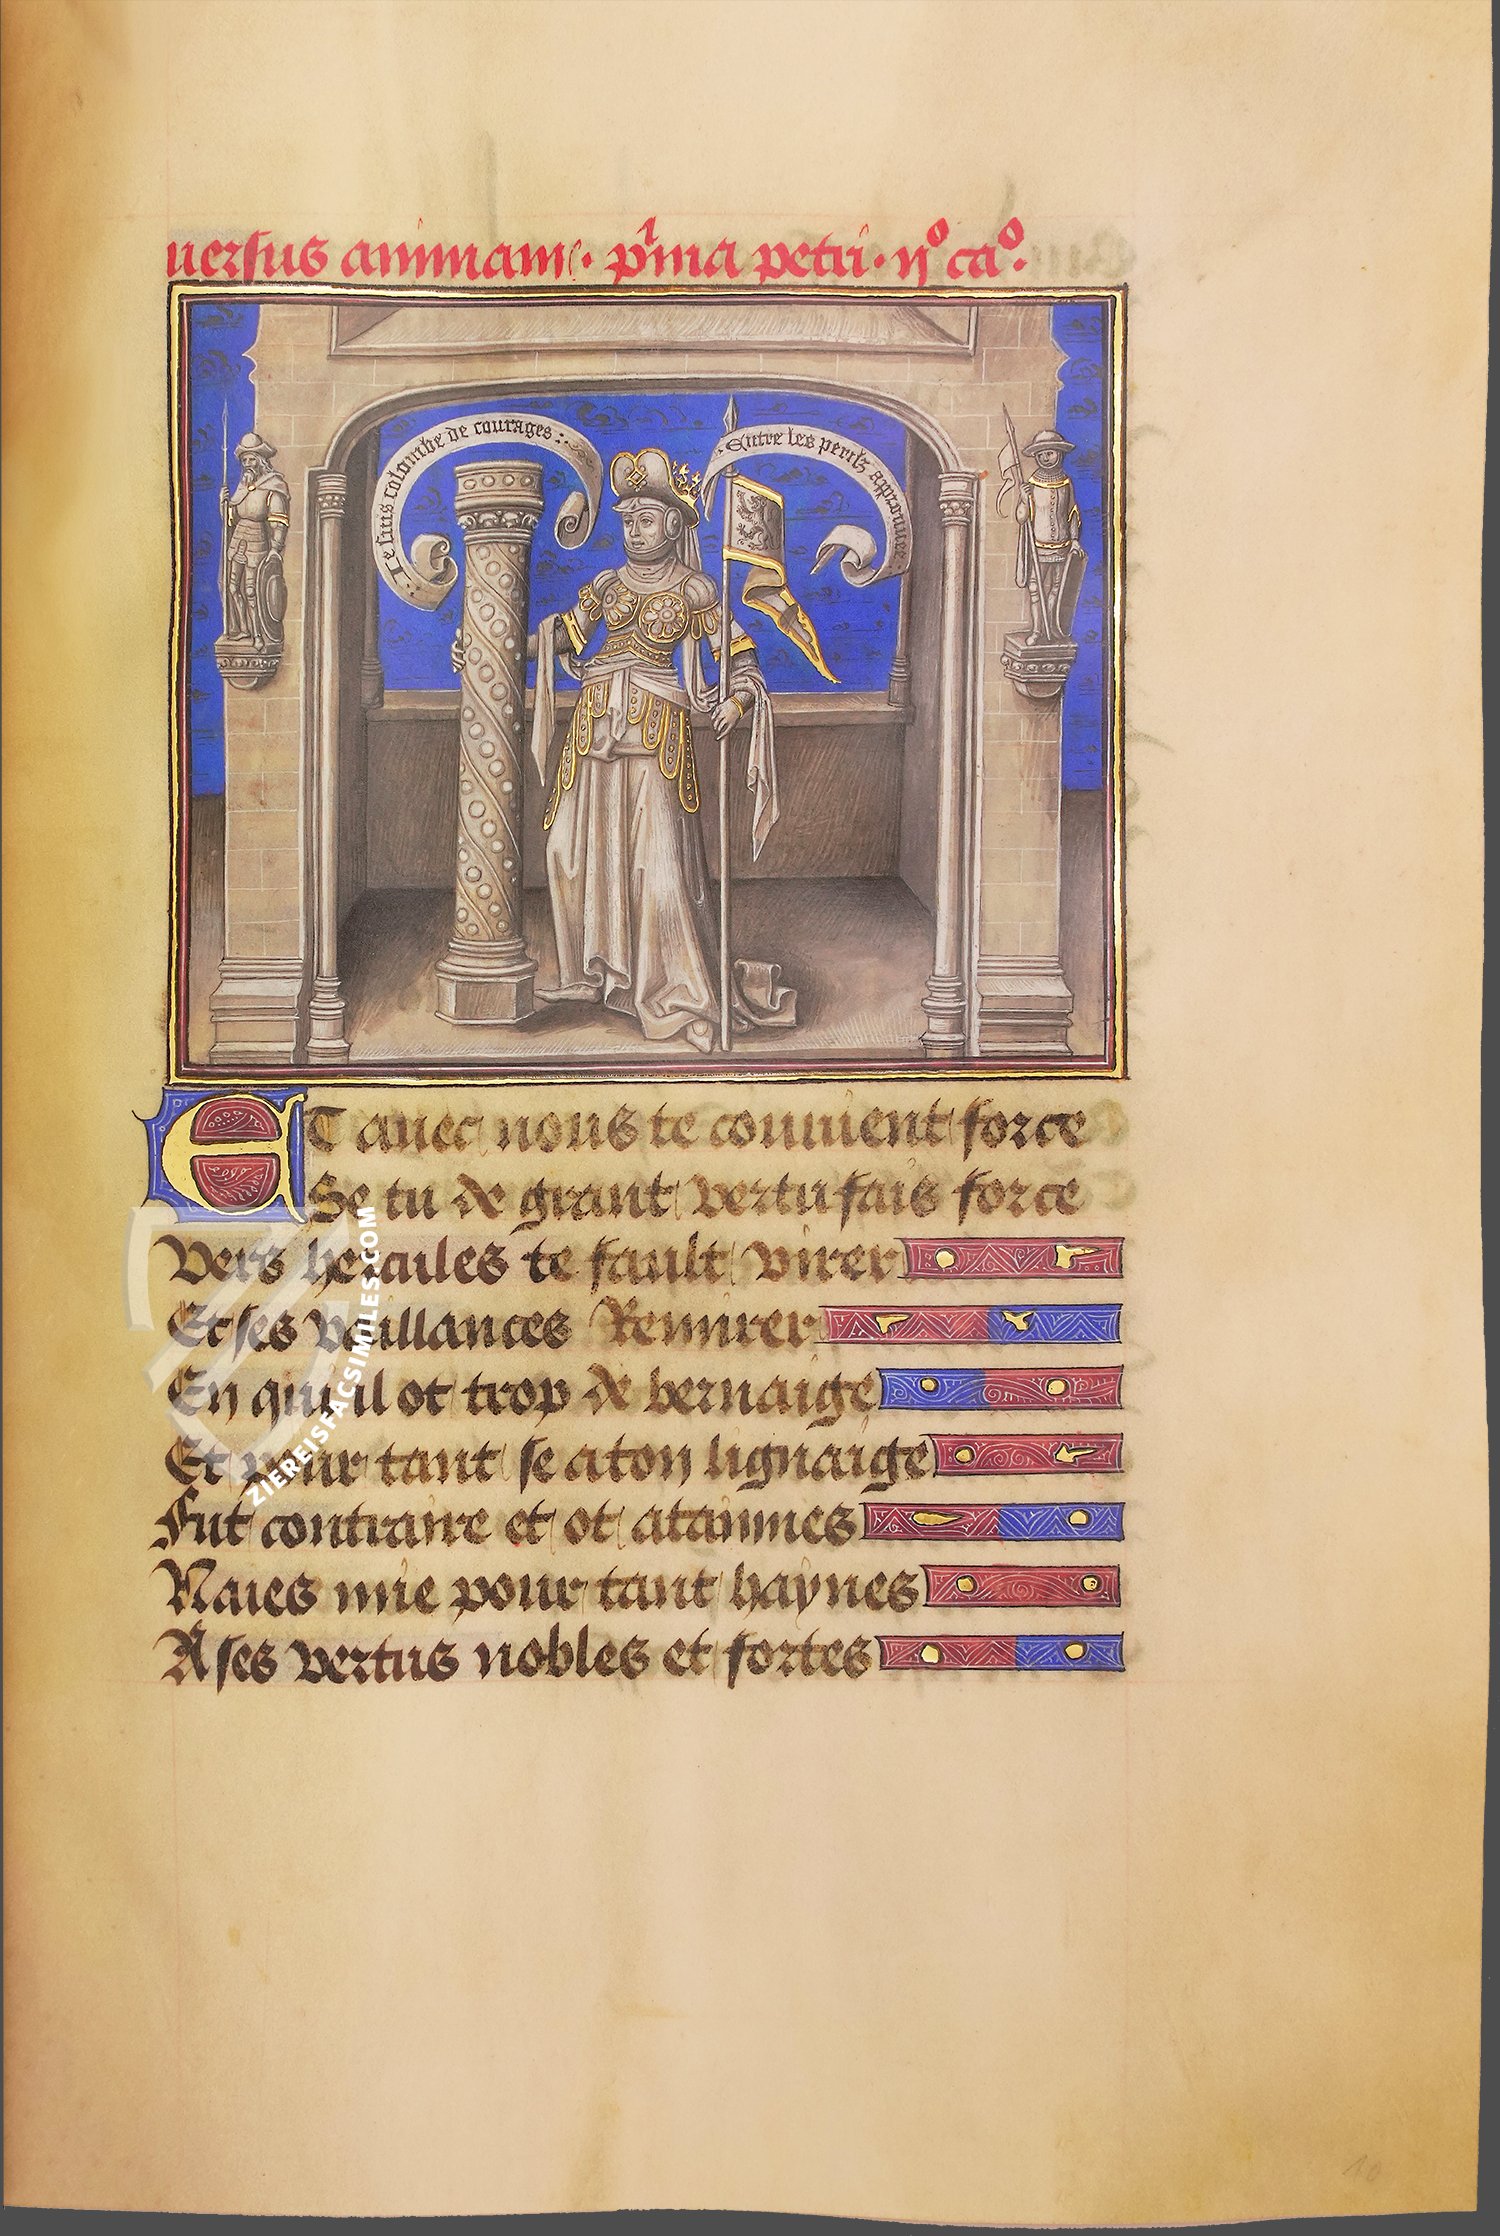 uersus animam· p'ma petri· ijº caº·
Je suis colombe de courages:
Entre les perilz approuuee
ET auec nous te conuient force
Se tu de grant vertu fais force
Vers hercules te fault virer
Et ses vaillances Remirer
En qui il ot trop de bernaige
Et pour tant se a ton lignaige
Fut contraire et ot ataiinnes
N'aies mie pour tant haynes
A ses vertus nobles et fortes
ZIEREISFACSIMILES.COM
10